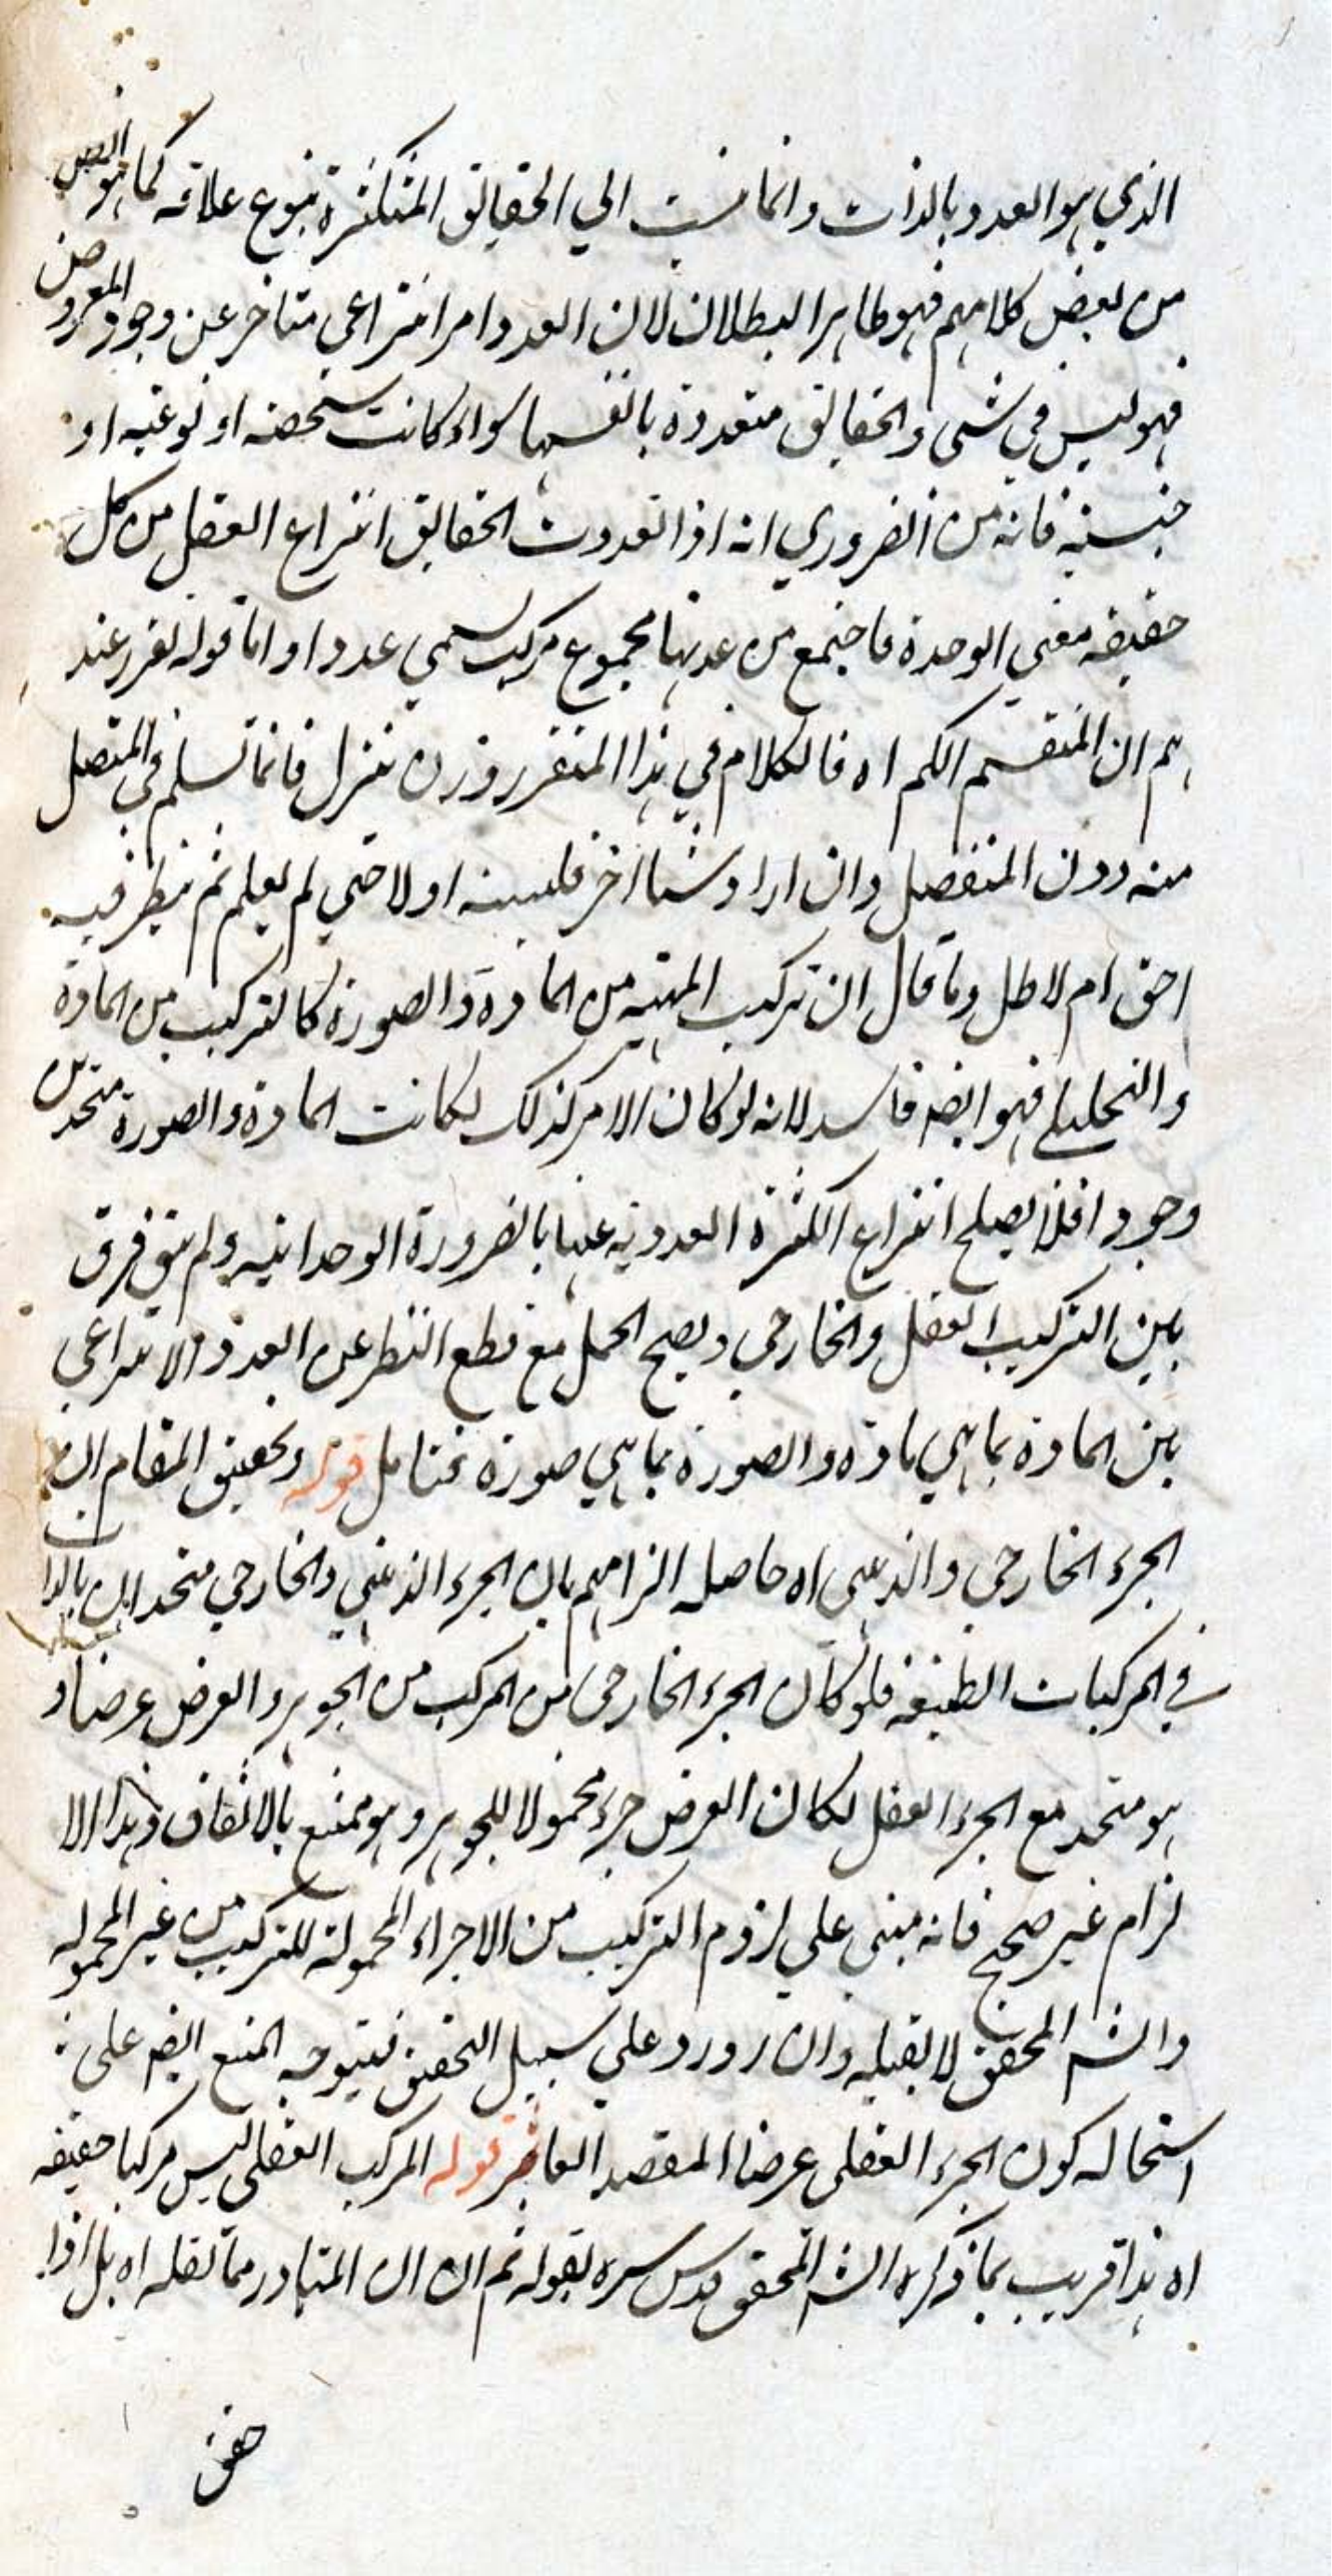 الذي هو العدد بالذات وانما نسبت الي الحقايق المتكثرة بنوع علاقه كما هو
من بعض كلامهم فهو ظاهر البطلان لان العدد امر انتزاعي متاخر عن وجود المعروض
فهو ليس في شي والحقايق متعددة بانفسها سواء كانت شخصه او نوعيه او
جنسيه فانه من الضروري انه اذا تعددت الحقايق انتزاع العقل من كل
حقيقه معني الوحدة فاجتمع من عدتها مجموع مركب يسمي عددا واما قوله تقرر عند
هم ان المنقسم الكم اه فالكلام في هذا المتقرر وان تنزل فانما تسلم في المتصل
منه دون المنفصل وان اراد شيا اخر فليبينه اولا حتي لم يعلم ثم ينظر فيه
احق ام لاطل وما قال ان تركيب المهيه من المادة والصورة كالتركيب من المادة
والتحليل فهو ايضه فاسد لانه لو كان الامر كذلك لكانت المادة والصورة متحدين
وجودا فلا يصلح انتزاع الكثرة العدديه عنها بالضرورة الوحدانيه ولم يبق فرق
بين التركيب العقل والخارجي ويصح الحمل مع قطع النظر عن العدد الانتراعي
بين المادة بما هي مادة والصورة بما هي صورة فتامل قوله وتحقيق المقام ان
الجزء الخارجي والذهني اه حاصله الزامهم بان الجزء الذهني والخارجي متحدان بالذات
في المركبات الطبيعه فلو كان الجزء الخارجي من المركب من الجوهر والعرض عرضا و
هو متحد مع الجزء العقل لكان العرض جزء محمولا للجوهر وهو ممتنع بالاتفاق وهذا الا
لزام غير صحيح فانه مبني علي لزوم التركيب من الاجزاء المحمولة للتركيب من غير المحموله
والشه المحقق لا يقبله وان اورد علي سبيل التحقيق فيتوجه المنع ايضه علي
استحاله كون الجزء العقلي عرضا المقصد العاشر قوله المركب العقلي ليس مركبا حقيقه
اه هذا قريب بما ذكره الشه المحقق قدس سره بقوله ثم ان ان المتبادر مما نقله اه بل اذا
حقق